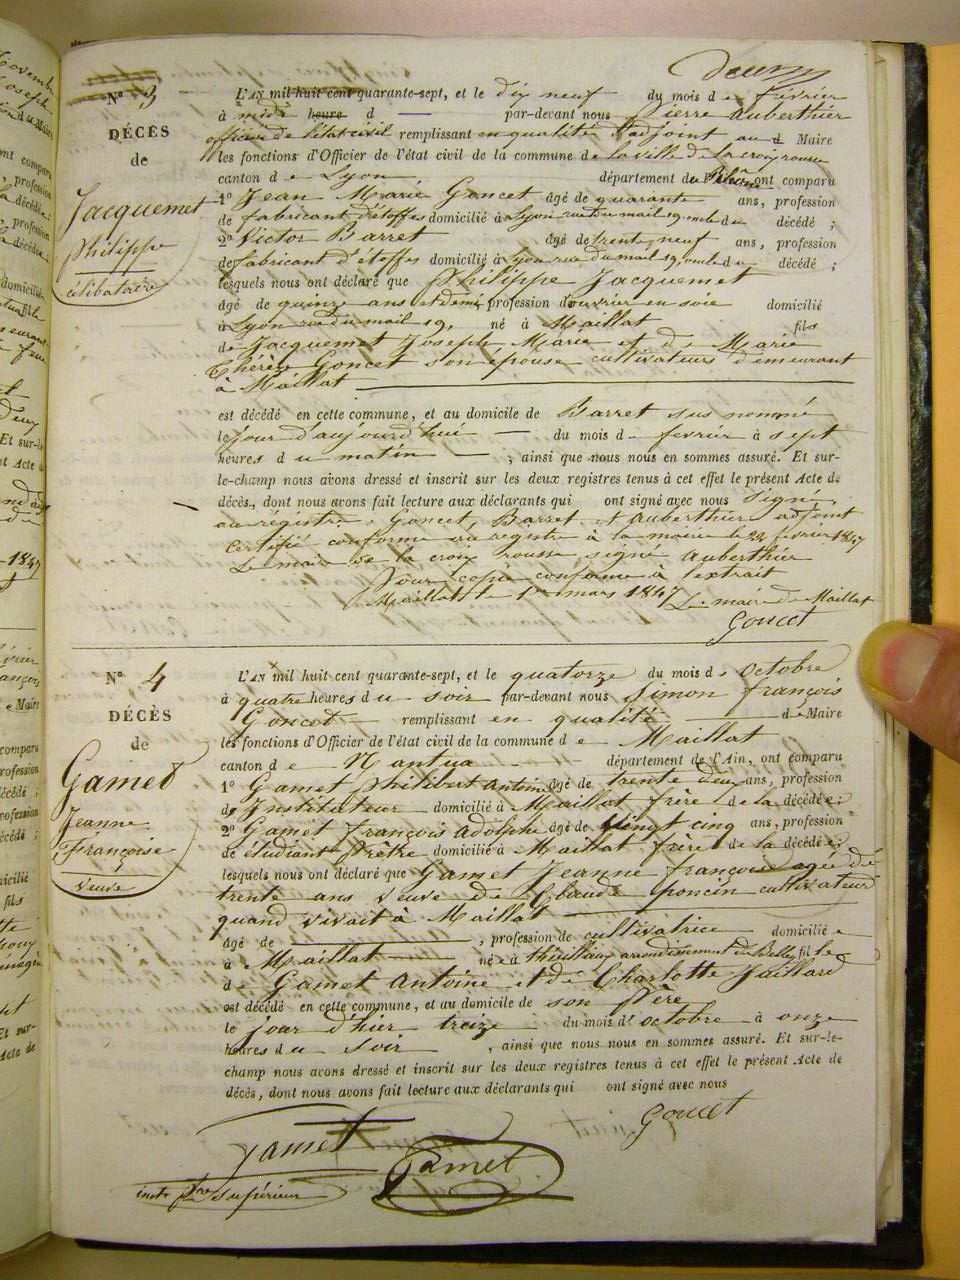 deux
N° 3
DÉCÈS
de
Jacquemet
Philippe
célibataire
L'AN mil huit cent quarante-sept, et le dix neuf du mois de février
à midi heure d — par-devant nous Pierre Auberthier
officier de l'état civil remplissant en qualité d'adjoint au d Maire
les fonctions d'Officier de l'état civil de la commune de la ville de la croix rousse
canton de Lyon, département du Rhône ont comparu
1° Jean Marie Goncet âgé de quarante ans, profession
de fabricant d'étoffes domicilié à Lyon rue du mail 19, oncle du décédé ;
2° Victor Barret âgé de trente neuf ans, profession
de fabricant d'étoffes domicilié à Lyon rue du mail 19, oncle du décédé ;
lesquels nous ont déclaré que Philippe Jacquemet
âgé de quinze ans et demi, profession d'ouvrier en soie domicilié
à Lyon rue du mail 19, né à Maillat fils
de Jacquemet Joseph Marie et de Marie
Thérèse Goncet son épouse cultivateurs demeurant
à Maillat
est décédé en cette commune, et au domicile de Barret sus nommé
le jour d'aujourd'hui — du mois de février à sept
heures du matin — ; ainsi que nous nous en sommes assuré. Et sur-
le-champ nous avons dressé et inscrit sur les deux registres tenus à cet effet le présent Acte de
décès, dont nous avons fait lecture aux déclarants qui ont signé avec nous signé
au registre, Goncet, Barret et Auberthier adjoint
Certifié conforme au registre à la mairie le 22 février 1847
Le maire de la croix rousse, signé Auberthier
Pour copie conforme à l'extrait
Maillat le 1er mars 1847 Le maire de Maillat
Goncet
N° 4
DÉCÈS
de
Gamet
Jeanne
Françoise
veuve
L'AN mil huit cent quarante-sept, et le quatorze du mois d'octobre
à quatre heures du soir par-devant nous Simon François
Goncet — remplissant en qualité — de Maire
les fonctions d'Officier de l'état civil de la commune de Maillat
canton de Nantua département de l'Ain, ont comparu
1° Gamet Philibert Antoine âgé de trente deux ans, profession
de Instituteur domicilié à Maillat frère de la décédée ;
2° Gamet françois adolphe âgé de vingt cinq ans, profession
de étudiant Prêtre domicilié à Maillat frère de la décédée ;
lesquels nous ont déclaré que Gamet Jeanne françoise agée de
trente ans veuve de Claude Poncin cultivateur
quand vivait à Maillat
âgé de —, profession de cultivatrice domiciliée
à Maillat — née à arrondissement de Belley fille
de Gamet Antoine et de Charlotte Jaillard
est décédé en cette commune, et au domicile de son Père
le jour d'hier treize du mois d'octobre à onze
heures du soir —, ainsi que nous nous en sommes assuré. Et sur-le-
champ nous avons dressé et inscrit sur les deux registres tenus à cet effet le présent Acte de
décès, dont nous avons fait lecture aux déclarants qui ont signé avec nous
Goncet
Gamet
Gamet
instr pre supérieur